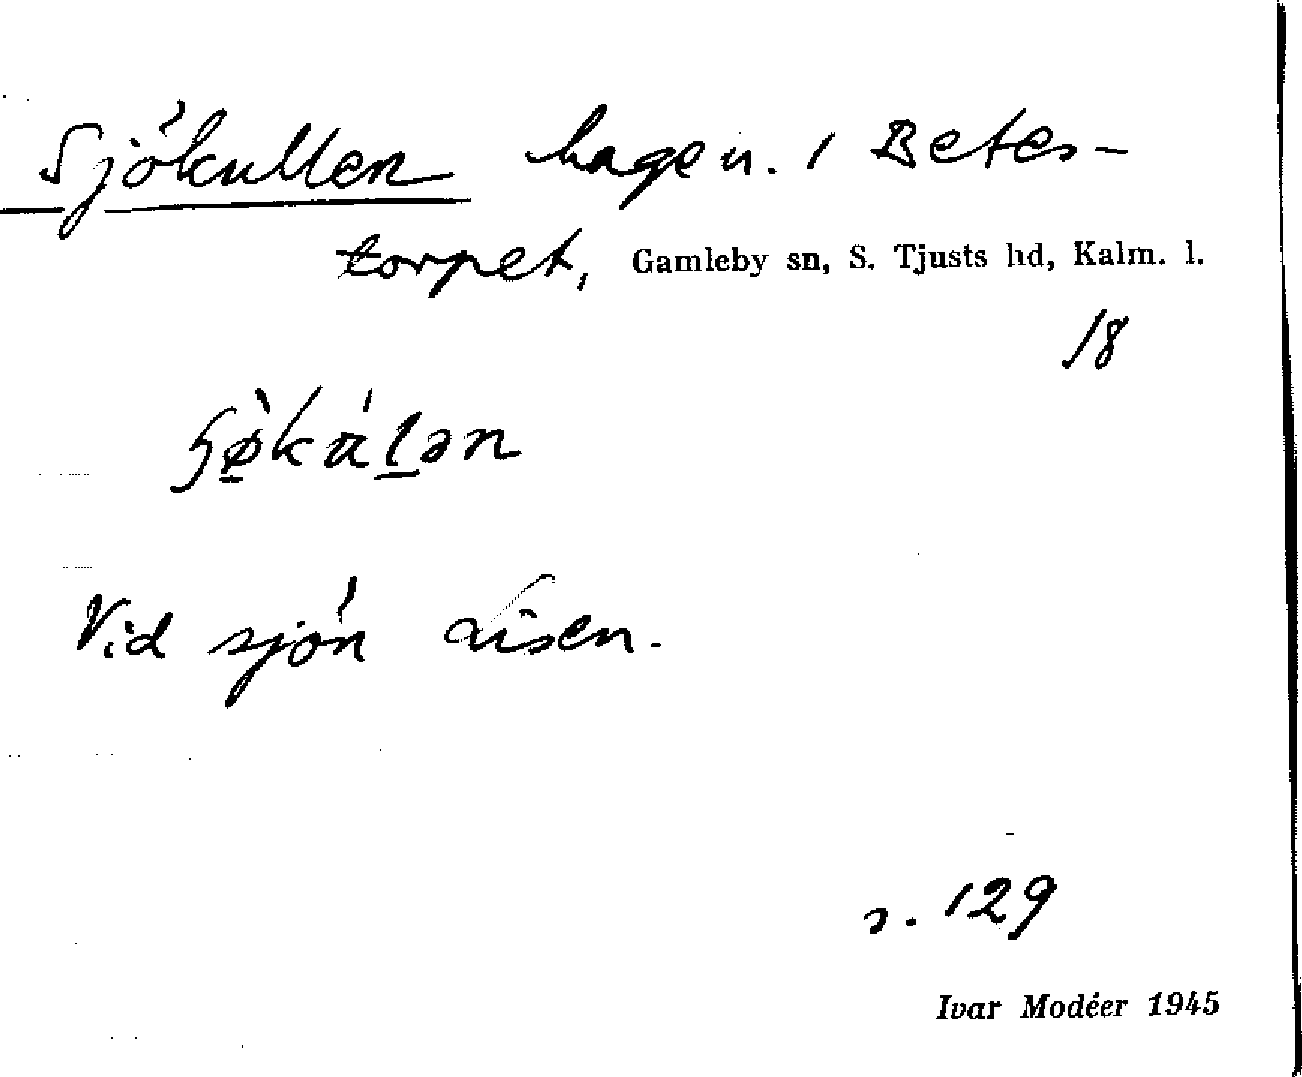 Sjökullen hagen i Betes-
torpet, Gamleby sn, S. Tjusts hd, Kalm. l.
18
Vid sjön Risen.
s. 129
Ivar Modéer 1945